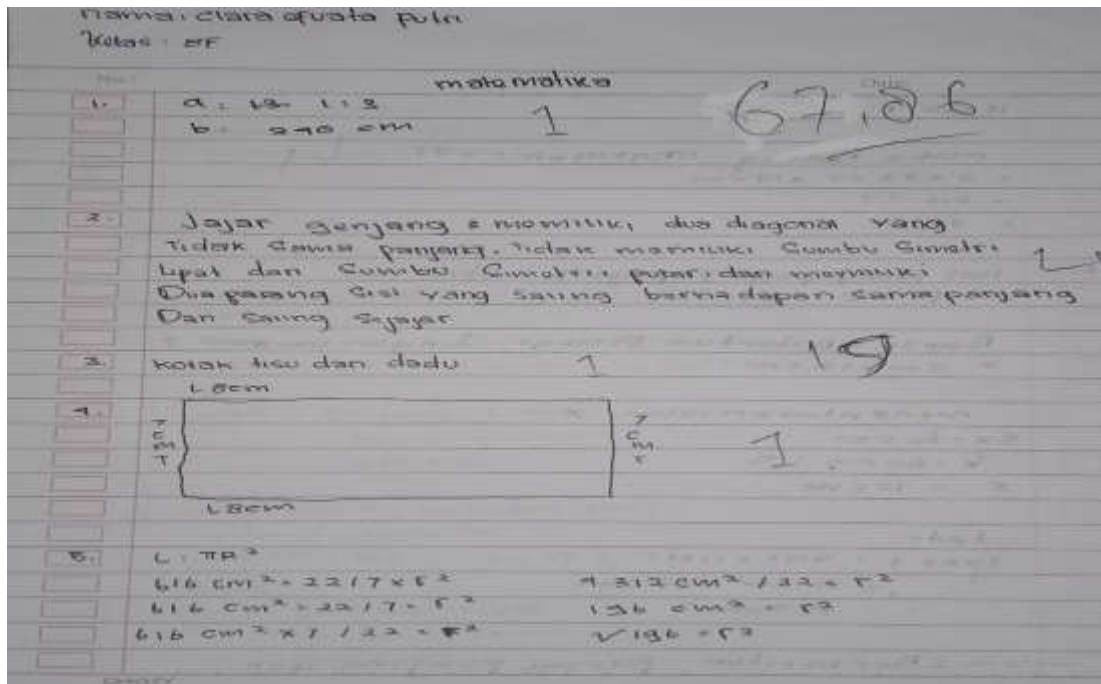 nama : clara afuata putri
Kelas : 
matematika
67,86
1. a. 1 : 3
b. 240 cm
1
2. Jajar genjang : memiliki dua diagonal yang
Tidak sama panjang. Tidak memiliki Sumbu Simetri
Lipat dan Sumbu Simetri putar. dan memiliki
Dua pasang sisi yang saling berhadapan sama panjang
Dan saling sejajar
1
3. kotak tisu dan dadu
1
19
L 8cm
4. 7 cm T
7 cm T
1
L 8cm
5. L : πR²
616 cm² = 22/7 x r²
4312 cm² / 22 = r²
616 cm² = 22/7 = r²
196 cm² = r²
616 cm² x 7 / 22 = r²
√196 = r²